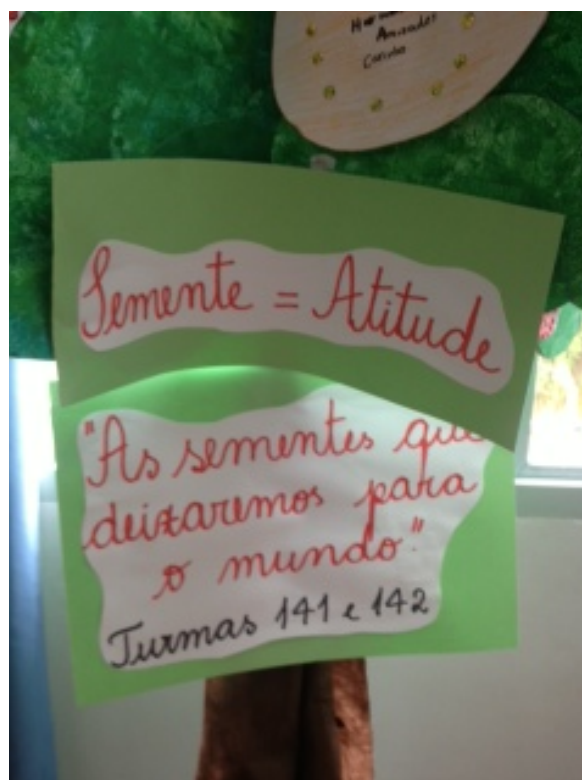 Amizade
Carinho
Semente = Atitude
"As sementes que
deixaremos para
o mundo."
Turmas 141 e 142